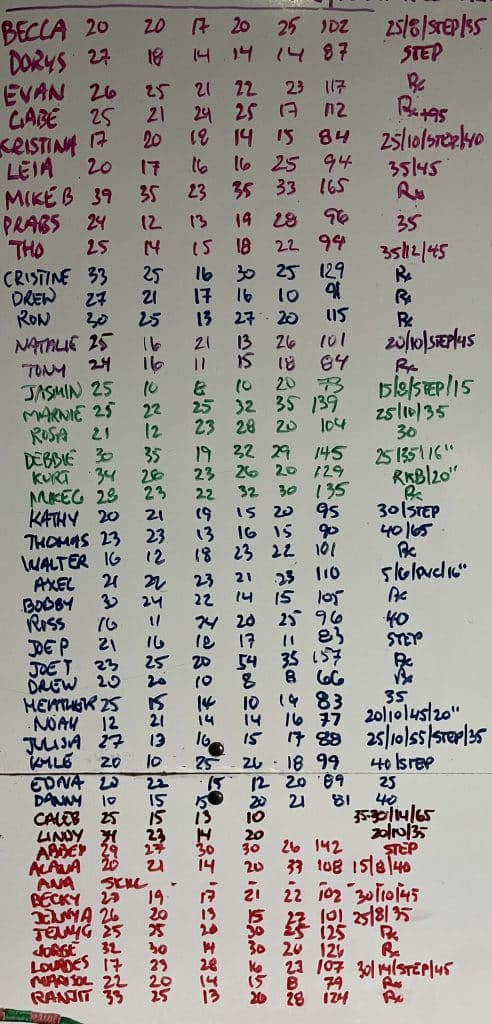 BECCA 20 20 17 20 25 102 25/8/STEP/35
DORYS 27 18 14 14 14 87 STEP
EVAN 26 25 21 22 23 117 Rx
GABE 25 21 24 25 17 112 Rx+95
KRISTINA 17 20 18 14 15 84 25/10/STEP/40
LEIA 20 17 16 16 25 94 35/45
MIKE B 39 35 23 35 33 165 Rx
PRABS 24 12 13 19 28 96 35
THO 25 14 15 18 22 94 35/12/45
CRISTINE 33 25 16 30 25 129 Rx
DREW 27 21 17 16 10 91 Rx
RON 30 25 13 27 20 115 Rx
NATALIE 25 16 21 13 26 101 20/10/STEP/45
TONY 24 16 11 15 18 84 Rx
JASMIN 25 10 8 10 20 73 15/8/STEP/15
MARNIE 25 22 25 32 35 139 25/10/35
ROSA 21 12 23 28 20 104 30
DEBBIE 30 35 19 32 29 145 25/35/16"
KURT 34 26 23 26 20 129 RKB/20"
MIKE G 28 23 22 32 30 135 Rx
KATHY 20 21 19 15 20 95 30/STEP
THOMAS 23 23 13 16 15 90 40/65
WALTER 16 12 18 23 22 101 Rx
AXEL 21 22 23 21 23 110 5/6/PVC/16"
BOBBY 30 24 22 14 15 105 Rx
ROSS 16 11 24 20 25 96 40
JOE P 21 16 18 17 11 83 STEP
JOE T 23 25 20 54 35 157 Rx
DREW 20 20 10 8 8 66 Rx
HEATHER 25 15 14 10 19 83 35
NOAH 12 21 14 14 16 77 20/10/45/20"
JULISIA 27 13 16 15 17 88 25/10/55/STEP/35
KYLE 20 10 25 26 18 99 40/STEP
EDNA 20 22 15 12 20 89 25
DANNY 10 15 15 20 21 81 40
CALEB 25 15 13 10 35-30/14/65
LINDY 34 23 14 20 20/10/35
29 27 30 30 26 142 STEP
ALANA 20 21 14 20 33 108 15/8/40
ANA - - - - -
BECKY 23 19 17 21 22 102 30/10/45
JENNY A 26 20 13 15 27 101 25/8/35
JENNY G 25 25 20 30 25 125 Rx
JORGE 32 30 14 30 20 126 Rx
LOURDES 17 23 28 16 23 107 30/14/STEP/45
22 20 14 15 8 79 Rx
RANJIT 33 25 13 26 28 124 Rx